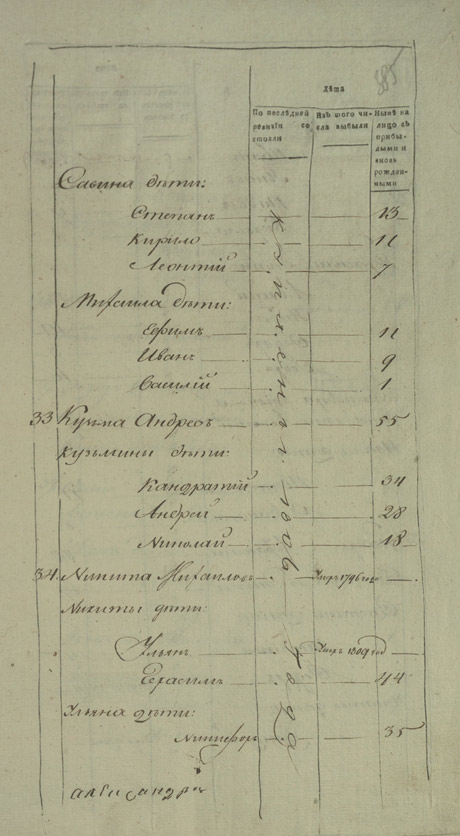 385
Лѣта
По послѣдней ревизіи состояли
Изъ того числа выбыли
Нынѣ на лицо съ прибылыми и вновь рожденными
Савина дѣти:
Степанъ 13
Кирило 11
Леонтій 7
Михаила дѣти:
Ефимъ 11
Иванъ 9
Василій 1
33 Кузьма Андреевъ 55
Кузьмины дѣти:
Кандратій 34
Андрей 28
Николай 18
34 Никита Михайловъ Умеръ 1796 году
Никиты дѣти:
Ульянъ Умеръ 1809 году
Герасимъ 44
Ульяна дѣти:
Никифоръ 35
года